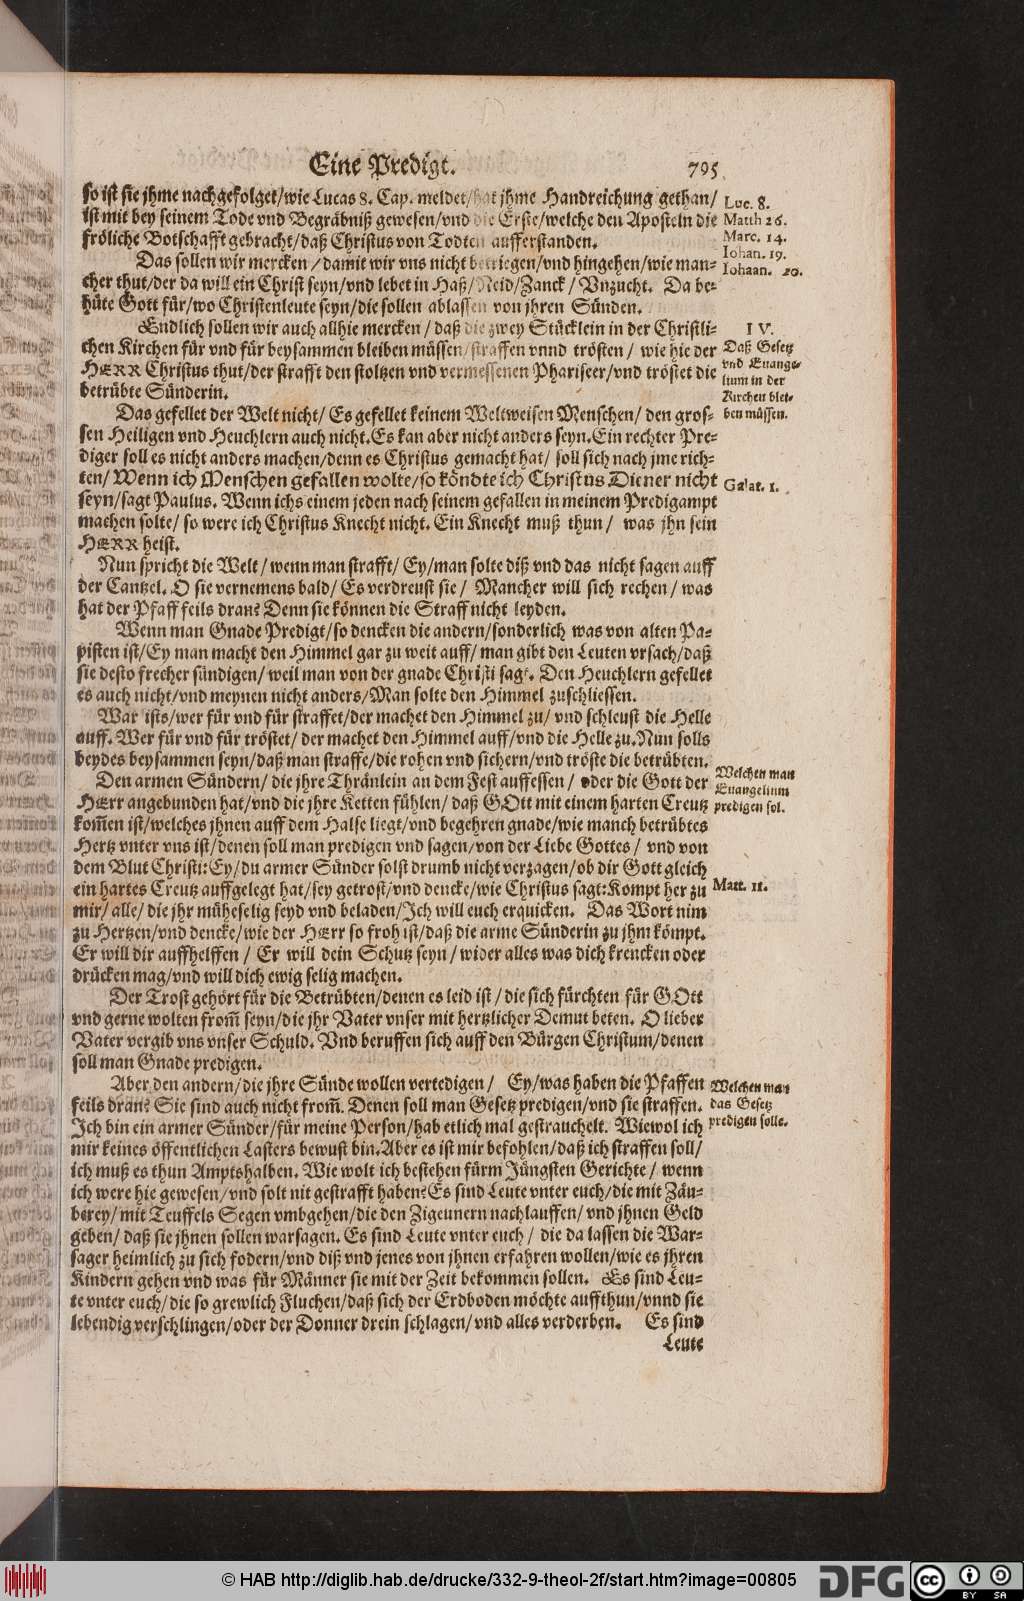 Eine Predigt. 795
so ist sie jhme nachgefolget/wie Lucas 8. Cap. meldet/hat jhme Handreichung gethan/
ist mit bey seinem Tode vnd Begräbniß gewesen/vnd die Erste/welche den Aposteln die
fröliche Botschafft gebracht/daß Christus von Todten aufferstanden.
Luc. 8.
Matth 26.
Marc. 14.
Iohan. 19.
Iohaan. 20.
Das sollen wir mercken/damit wir vns nicht betriegen/vnd hingehen/wie man-
cher thut/der da will ein Christ seyn/vnd lebet in Haß/Neid/Zanck/Vnzucht. Da be-
hüte Gott für/wo Christenleute seyn/die sollen ablassen von jhren Sünden.
Endlich sollen wir auch allhie mercken/daß die zwey Stücklein in der Christli-
chen Kirchen für vnd für beysammen bleiben müssen/straffen vnnd trösten/wie hie der
HERR Christus thut/der strafft den stoltzen vnd vermessenen Phariseer/vnd tröstet die
betrübte Sünderin.
IV.
Daß Gesetz
vnd Euange-
lium in der
Kirchen blei-
ben müssen.
Das gefellet der Welt nicht/Es gefellet keinem Weltweisen Menschen/den gros-
sen Heiligen vnd Heuchlern auch nicht. Es kan aber nicht anders seyn. Ein rechter Pre-
diger soll es nicht anders machen/denn es Christus gemacht hat/soll sich nach jme rich-
ten/Wenn ich Menschen gefallen wolte/so köndte ich Christus Diener nicht
seyn/sagt Paulus. Wenn ichs einem jeden nach seinem gefallen in meinem Predigampt
machen solte/so were ich Christus Knecht nicht. Ein Knecht muß thun/was jhn sein
HERR heist.
Galat. 1.
Nun spricht die Welt/wenn man strafft/Ey/man solte diß vnd das nicht sagen auff
der Cantzel. O sie vernemens bald/Es verdreust sie/Mancher will sich rechen/was
hat der Pfaff feils dran? Denn sie können die Straff nicht leyden.
Wenn man Gnade Predigt/so dencken die andern/sonderlich was von alten Pa-
pisten ist/Ey man macht den Himmel gar zu weit auff/man gibt den Leuten vrsach/daß
sie desto frecher sündigen/weil man von der gnade Christi sagt. Den Heuchlern gefellet
es auch nicht/vnd meynen nicht anders/Man solte den Himmel zuschliessen.
War ists/wer für vnd für straffet/der machet den Himmel zu/vnd schleust die Helle
auff. Wer für vnd für tröstet/der machet den Himmel auff/vnd die Helle zu. Nun solls
beydes beysammen seyn/daß man straffe/die rohen vnd sichern/vnd tröste die betrübten.
Den armen Sündern/die jhre Thränlein an dem Fest auffessen/oder die Gott der
HErr angebunden hat/vnd die jhre Ketten fühlen/daß GOtt mit einem harten Creutz
kom̃en ist/welches jhnen auff dem Halse liegt/vnd begehren gnade/wie manch betrübtes
Hertz vnter vns ist/denen soll man predigen vnd sagen/von der Liebe Gottes/vnd von
dem Blut Christi: Ey/du armer Sünder solst drumb nicht verzagen/ob dir Gott gleich
ein hartes Creutz auffgelegt hat/sey getrost/vnd dencke/wie Christus sagt: Kompt her zu
mir/alle/die jhr müheselig seyd vnd beladen/Ich will euch erquicken. Das Wort nim
zu Hertzen/vnd dencke/wie der HErr so froh ist/daß die arme Sünderin zu jhm kömpt.
Er will dir auffhelffen/Er will dein Schutz seyn/wider alles was dich krencken oder
drücken mag/vnd will dich ewig selig machen.
Welchen man
Euangelium
predigen sol.
Matt. 11.
Der Trost gehört für die Betrübten/denen es leid ist/die sich fürchten für GOtt
vnd gerne wolten from̃ seyn/die jhr Vater vnser mit hertzlicher Demut beten. O lieber
Vater vergib vns vnser Schuld. Vnd beruffen sich auff den Bürgen Christum/denen
soll man Gnade predigen.
Aber den andern/die jhre Sünde wollen vertedigen/Ey/was haben die Pfaffen
feils dran? Sie sind auch nicht from̃. Denen soll man Gesetz predigen/vnd sie straffen.
Ich bin ein armer Sünder/für meine Person/hab etlich mal gestrauchelt. Wiewol ich
mir keines öffentlichen Lasters bewust bin. Aber es ist mir befohlen/daß ich straffen soll/
ich muß es thun Amptshalben. Wie wolt ich bestehen fürm Jüngsten Gerichte/wenn
ich were hie gewesen/vnd solt nit gestrafft haben? Es sind Leute vnter euch/die mit Zäu-
berey/mit Teuffels Segen vmbgehen/die den Zigeunern nachlauffen/vnd jhnen Geld
geben/daß sie jhnen sollen warsagen. Es sind Leute vnter euch/die da lassen die War-
sager heimlich zu sich fodern/vnd diß vnd jenes von jhnen erfahren wollen/wie es jhren
Kindern gehen vnd was für Männer sie mit der Zeit bekommen sollen. Es sind Leu-
te vnter euch/die so grewlich Fluchen/daß sich der Erdboden möchte auffthun/vnnd sie
lebendig verschlingen/oder der Donner drein schlagen/vnd alles verderben. Es sind
Leute
Welchen man
das Gesetz
predigen solle.
© HAB http://diglib.hab.de/drucke/332-9-theol-2f/start.htm?image=00805
DFG
cc BY SA